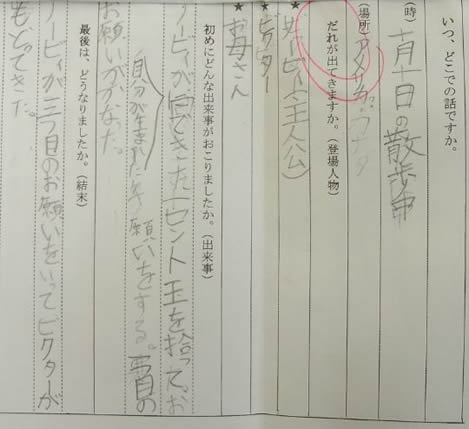 いつ、どこでの話ですか。
(時) 十月十日の散歩中
(場所) アメリカ、
だれが出てきますか。(登場人物)
(主人公)
★ ビクター
★ お母さん
初めにどんな出来事がおこりましたか。(出来事)
セント玉を拾って。お
自分が生まれた年 願いをする。
お願いがかなった。
最後は、どうなりましたか。(結末)
ービィが三つ目のお願いをいってビクターが
もどってきた。